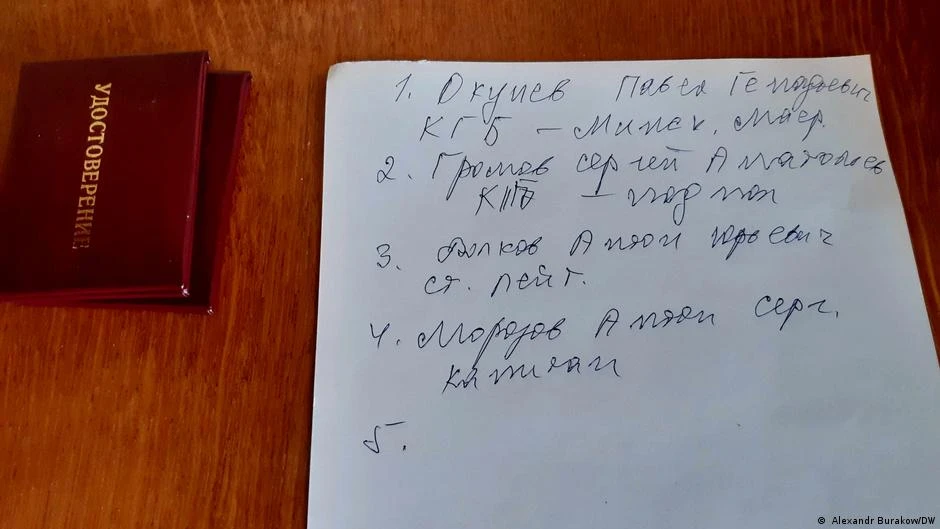 УДОСТОВЕРЕНИЕ
1. Окунев Павел Генадьевич
КГБ – Минск, майор.
2. Громов Сергей Анатольев
КГБ – подпол
3. Волков Антон Юрьевич
ст. лейт.
4. Морозов Антон Серг.
капитан
5.
© Alexandr Burakow/DW